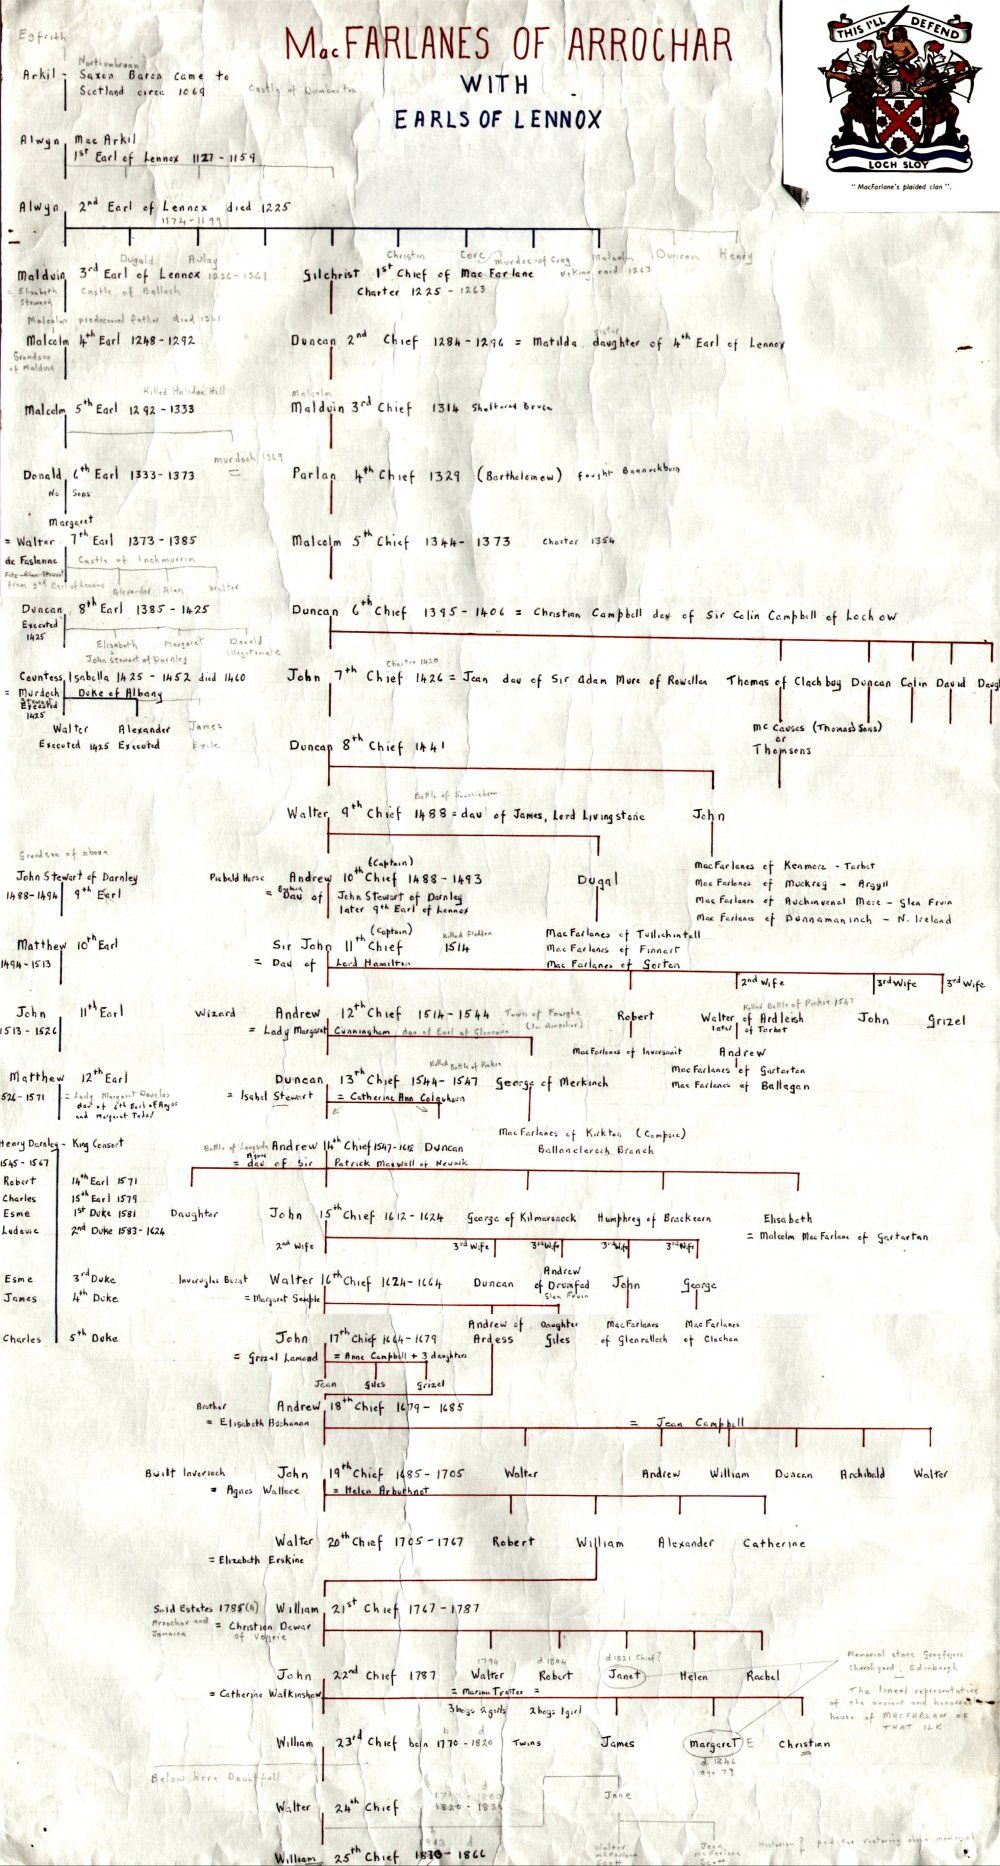 Egfrith
MacFARLANES OF ARROCHAR
WITH
EARLS OF LENNOX
THIS I'LL DEFEND
LOCH SLOY
"MacFarlane's plaided clan".
Northumbrian
Arkil - Saxon Baron came to
Scotland circa 1069
Castle of Dumbarton
Alwyn Mac Arkil
1st Earl of Lennox 1127 - 1159
Alwyn 2nd Earl of Lennox died 1225
1174-1199
Dugald Aulay Christin Corc murder of Crog Malcolm Duncan Henry
Viking raid 1263
Malduin 3rd Earl of Lennox Gilchrist 1st Chief of MacFarlane
= Elizabeth Steward Castle of Balloch
Charter 1225 - 1263
Malcolm predeceased father died
Malcolm 4th Earl 1248-1292
Grandson of Malduin
Duncan 2nd Chief 1284-1296 = Matilda daughter of 4th Earl of Lennox
sister
Killed Halidon Hill
Malcolm 5th Earl 1292-1333
Malcolm
Malduin 3rd Chief 1314 Sheltered Bruce
Murdoch 1369
Donald 6th Earl 1333-1373
No Sons
Parlan 4th Chief 1329 (Bartholemew) fought Bannockburn
Margaret
= Walter 7th Earl 1373-1385
de Faslanne Castle of Inchmurrin
from 2nd Earl of Lennox
Malcolm 5th Chief 1344-1373 Charter 1354
Alexander Alan Walter
Duncan 8th Earl 1385-1425
Executed 1425
Duncan 6th Chief 1395-1406 = Christian Campbell dau of Sir Colin Campbell of Lochow
Elizabeth Margaret Donald
illegitimate
John Stewart of Darnley
Countess Isabella 1425 - 1452 died 1460
= Murdoch Duke of Albany
Stewart
Executed 1425
Charter 1420
John 7th Chief 1426 = Jean dau of Sir Adam Mure of Rowallan Thomas of Clachbuy Duncan Colin David
Walter Alexander James
Executed 1425 Executed Exile
McCauses (Thomas's Sons)
or
Thomsons
Duncan 8th Chief 1441
Battle of Sauchieburn
Walter 9th Chief 1488 = dau of James, Lord Livingstone John
Grandson of above
John Stewart of Darnley
1488-1494 9th Earl
(Captain)
Piebald Horse Andrew 10th Chief 1488-1493 Dugal
= Dau of John Stewart of Darnley
later 9th Earl of Lennox
MacFarlanes of Kenmore - Tarbet
MacFarlanes of Muckroy - Argyll
MacFarlanes of Auchinvenal More - Glen Fruin
MacFarlanes of Dunnamaninch - N. Ireland
Matthew 10th Earl
1494-1513
(Captain) Killed Flodden
Sir John 11th Chief 1514
= Dau of Lord Hamilton
MacFarlanes of Tullichintall
MacFarlanes of Finnart
MacFarlanes of Gorton
2nd Wife 3rd Wife 3rd Wife
John 11th Earl
1513-1526
Wizard Andrew 12th Chief 1514-1544
(In Arrochar)
= Lady Margaret Cunningham dau of Earl of Glencairn
Killed Battle of Pinkie 1547
Robert Walter of Ardleish John Grizel
later of Tarbet
MacFarlanes of Inversnait
Andrew
MacFarlanes of Gartartan
MacFarlanes of Ballagan
Matthew 12th Earl
1526-1571 = Lady Margaret Douglas
dau of 6th Earl of Angus
and Margaret Tudor
Killed Battle of Pinkie
Duncan 13th Chief 1544-1547 George of Merkinch
= Isabel Stewart = Catherine Ann Colquhoun
MacFarlanes of Kirkton (Campsie)
Ballancleroch Branch
Henry Darnley - King Consort
1545-1567
Battle of Langside Andrew 14th Chief 1547-1612 Duncan
Agnes
= dau of Sir Patrick Maxwell of Newark
Robert 14th Earl 1571
Charles 15th Earl 1579
Esme 1st Duke 1581
Ludovic 2nd Duke 1583-1624
Daughter John 15th Chief 1612-1624 George of Kilmaronock Humphrey of Brackearn Elisabeth
= Malcolm MacFarlane of Gartartan
2nd Wife 3rd Wife 3rd Wife 3rd Wife 3rd Wife
Esme 3rd Duke
James 4th Duke
Charles 5th Duke
Inveruglas Burnt Walter 16th Chief 1624-1664 Duncan Andrew of Drumfad John George
Glen Fruin
= Margaret Semple
Andrew of Ardess Daughter Giles MacFarlanes of Glenralloch MacFarlanes of Clachan
John 17th Chief 1664-1679
= Grizel Lamond = Anne Campbell + 3 daughters
Jean Giles Grizel
Brother Andrew 18th Chief 1679-1685
= Elisabeth Buchanan = Jean Campbell
Built Inverioch John 19th Chief 1685-1705 Walter Andrew William Duncan Archibald Walter
= Agnes Wallace = Helen Arbuthnot
Walter 20th Chief 1705-1767 Robert William Alexander Catherine
= Elizabeth Erskine
Sold Estates 1785(4) William 21st Chief 1767-1787
Arrochar and Jamaica = Christian Dewar
of Vogrie
1794 d 1804 d 1821 Chief?
John 22nd Chief 1787 Walter Robert Janet Helen Rachel
= Catherine Walkinshaw = Marion Trotter =
3 boys 2 girls 2 boys 1 girl
Memorial stone Greyfriars
Churchyard Edinburgh
The lineal representative
of the ancient and honoured
house of MACFARLAN OF
THAT ILK
b d
William 23rd Chief born 1770-1820 Twins James Margaret E Christian
d 1846
age 79
Below here Doubtfull
Jane
Walter 24th Chief
William 25th Chief 1830-1866
Walter
MacFarlane
Scott
Jean
MacFarlane
Scott
Historian? paid for restoring above memorial